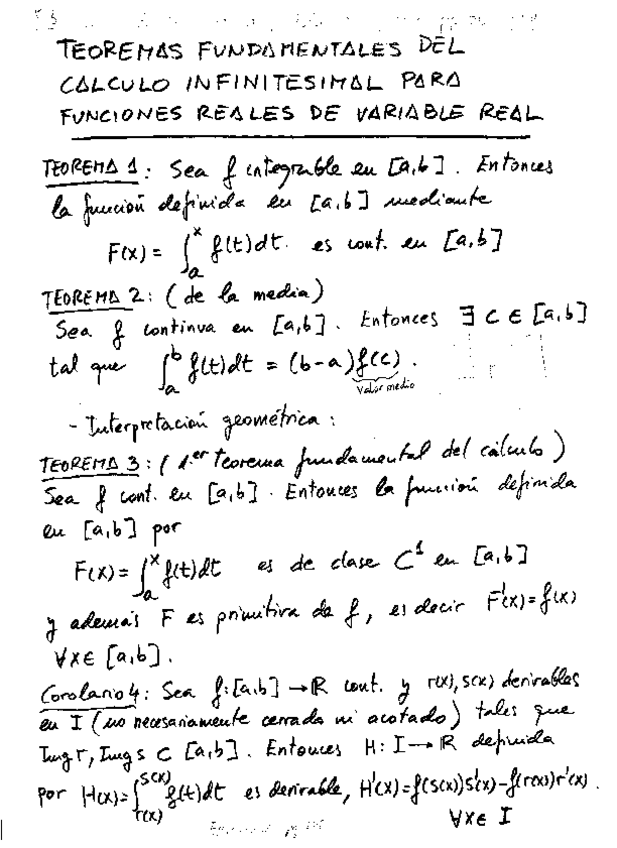 TEOREMAS FUNDAMENTALES DEL
CALCULO INFINITESIMAL PARA
FUNCIONES REALES DE VARIABLE REAL
TEOREMA 1: Sea f integrable en [a,b]. Entonces
la función definida en [a,b] mediante
F(x) = ∫_a^x f(t)dt. es cont. en [a,b]
TEOREMA 2: (de la media)
Sea f continua en [a,b]. Entonces ∃ c ∈ [a,b]
tal que ∫_a^b f(t)dt = (b-a)f(c).
valor medio
- Interpretación geométrica:
TEOREMA 3: (1.er Teorema fundamental del cálculo)
Sea f cont. en [a,b]. Entonces la función definida
en [a,b] por
F(x) = ∫_a^x f(t)dt es de clase C^1 en [a,b]
y además F es primitiva de f, es decir F'(x)=f(x)
∀x∈ [a,b].
Corolario 4: Sea f:[a,b] → ℝ cont. y r(x), s(x) derivables
en I (no necesariamente cerrado ni acotado) tales que
Img r, Img s ⊂ [a,b]. Entonces H: I → ℝ definida
por H(x)=∫_{r(x)}^{s(x)} f(t)dt es derivable, H'(x)=f(s(x))s'(x)-f(r(x))r'(x).
∀x∈ I